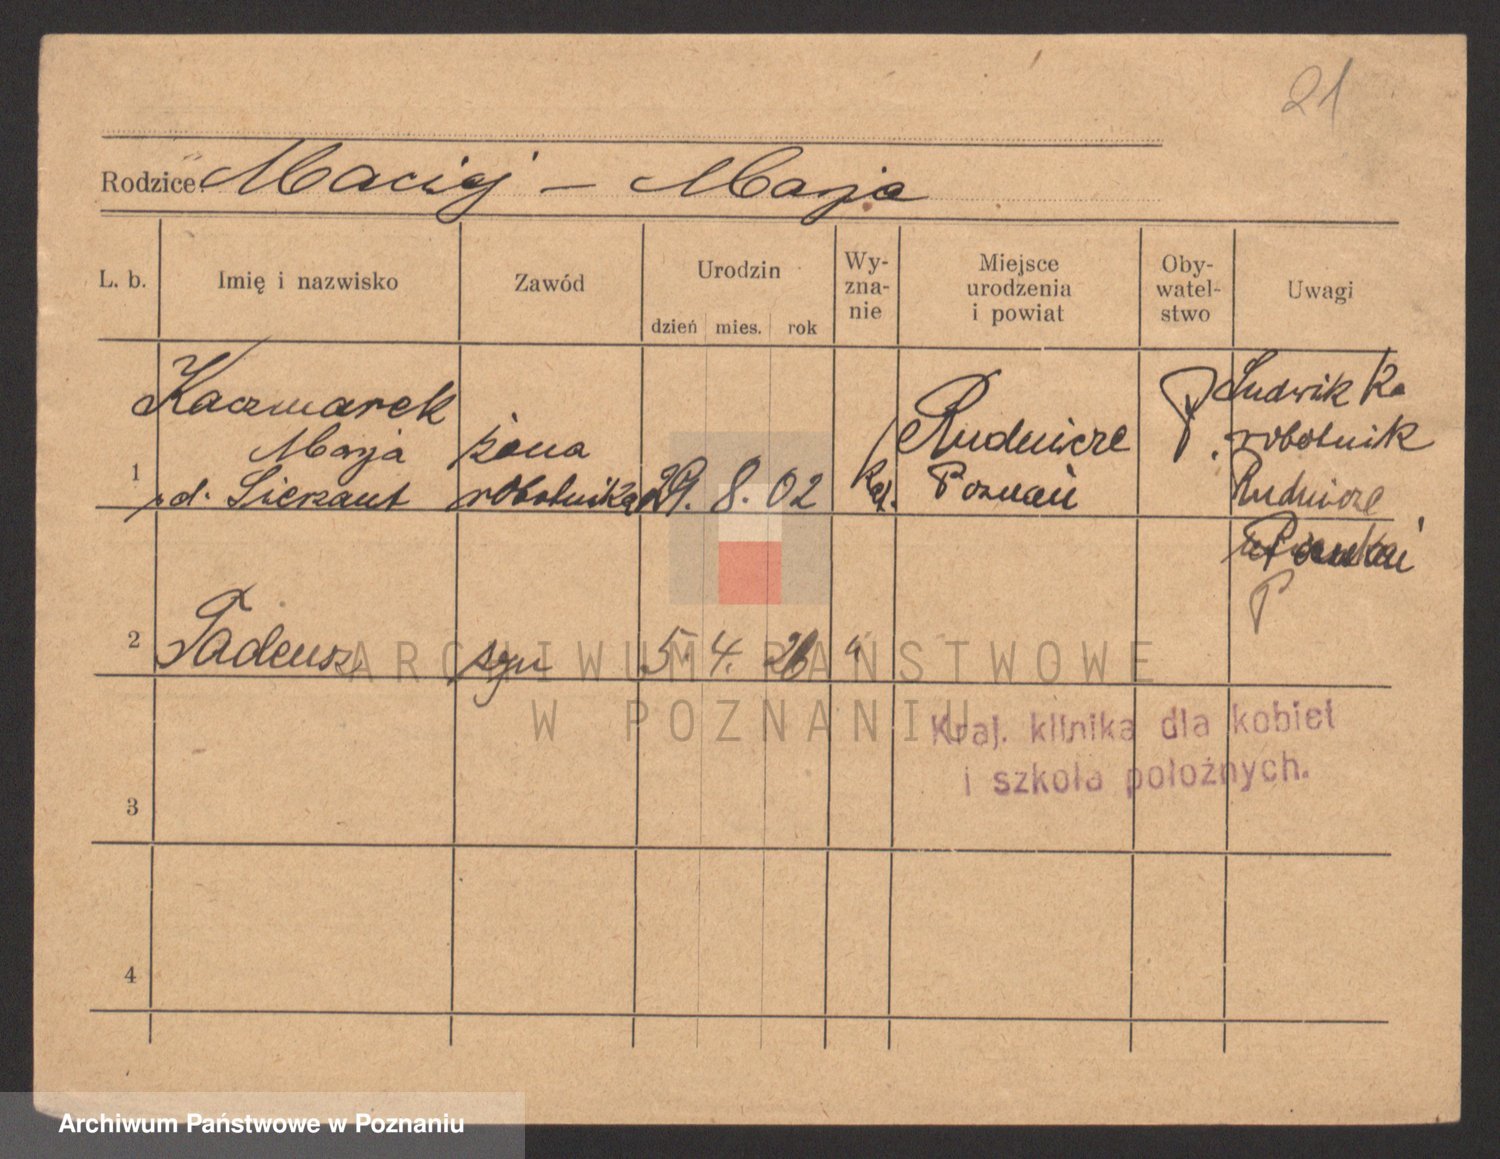 21
Rodzice Maciej – Marja
L. b.
Imię i nazwisko
Zawód
Urodzin
dzień mies. rok
Wy-
zna-
nie
Miejsce
urodzenia
i powiat
Oby-
watel-
stwo
Uwagi
1
Kaczmarek
Marja
Siekaut
żona
robotnika
29. 8. 02
kat.
Rudnicze
Poznań
P.
Ludwik Ka
robotnik
Rudnicze
P
2
Tadeusz
syn
5. 4. 26
"
Kraj. klinika dla kobiet
i szkoła położnych.
3
4
ARCHIWUM PAŃSTWOWE
W POZNANIU
Archiwum Państwowe w Poznaniu